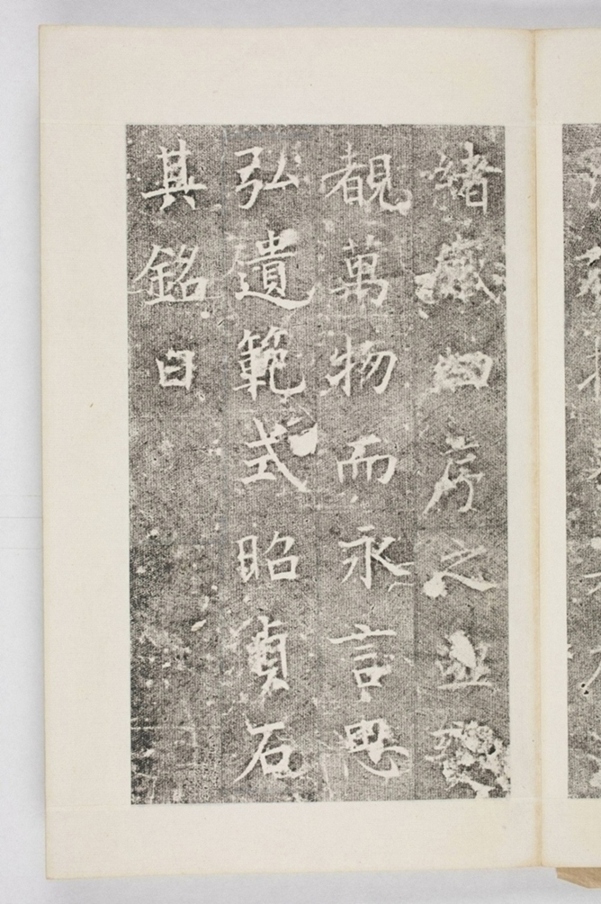 緒感四序之並
覩萬物而永言思
弘遺範式昭貞石
其銘曰